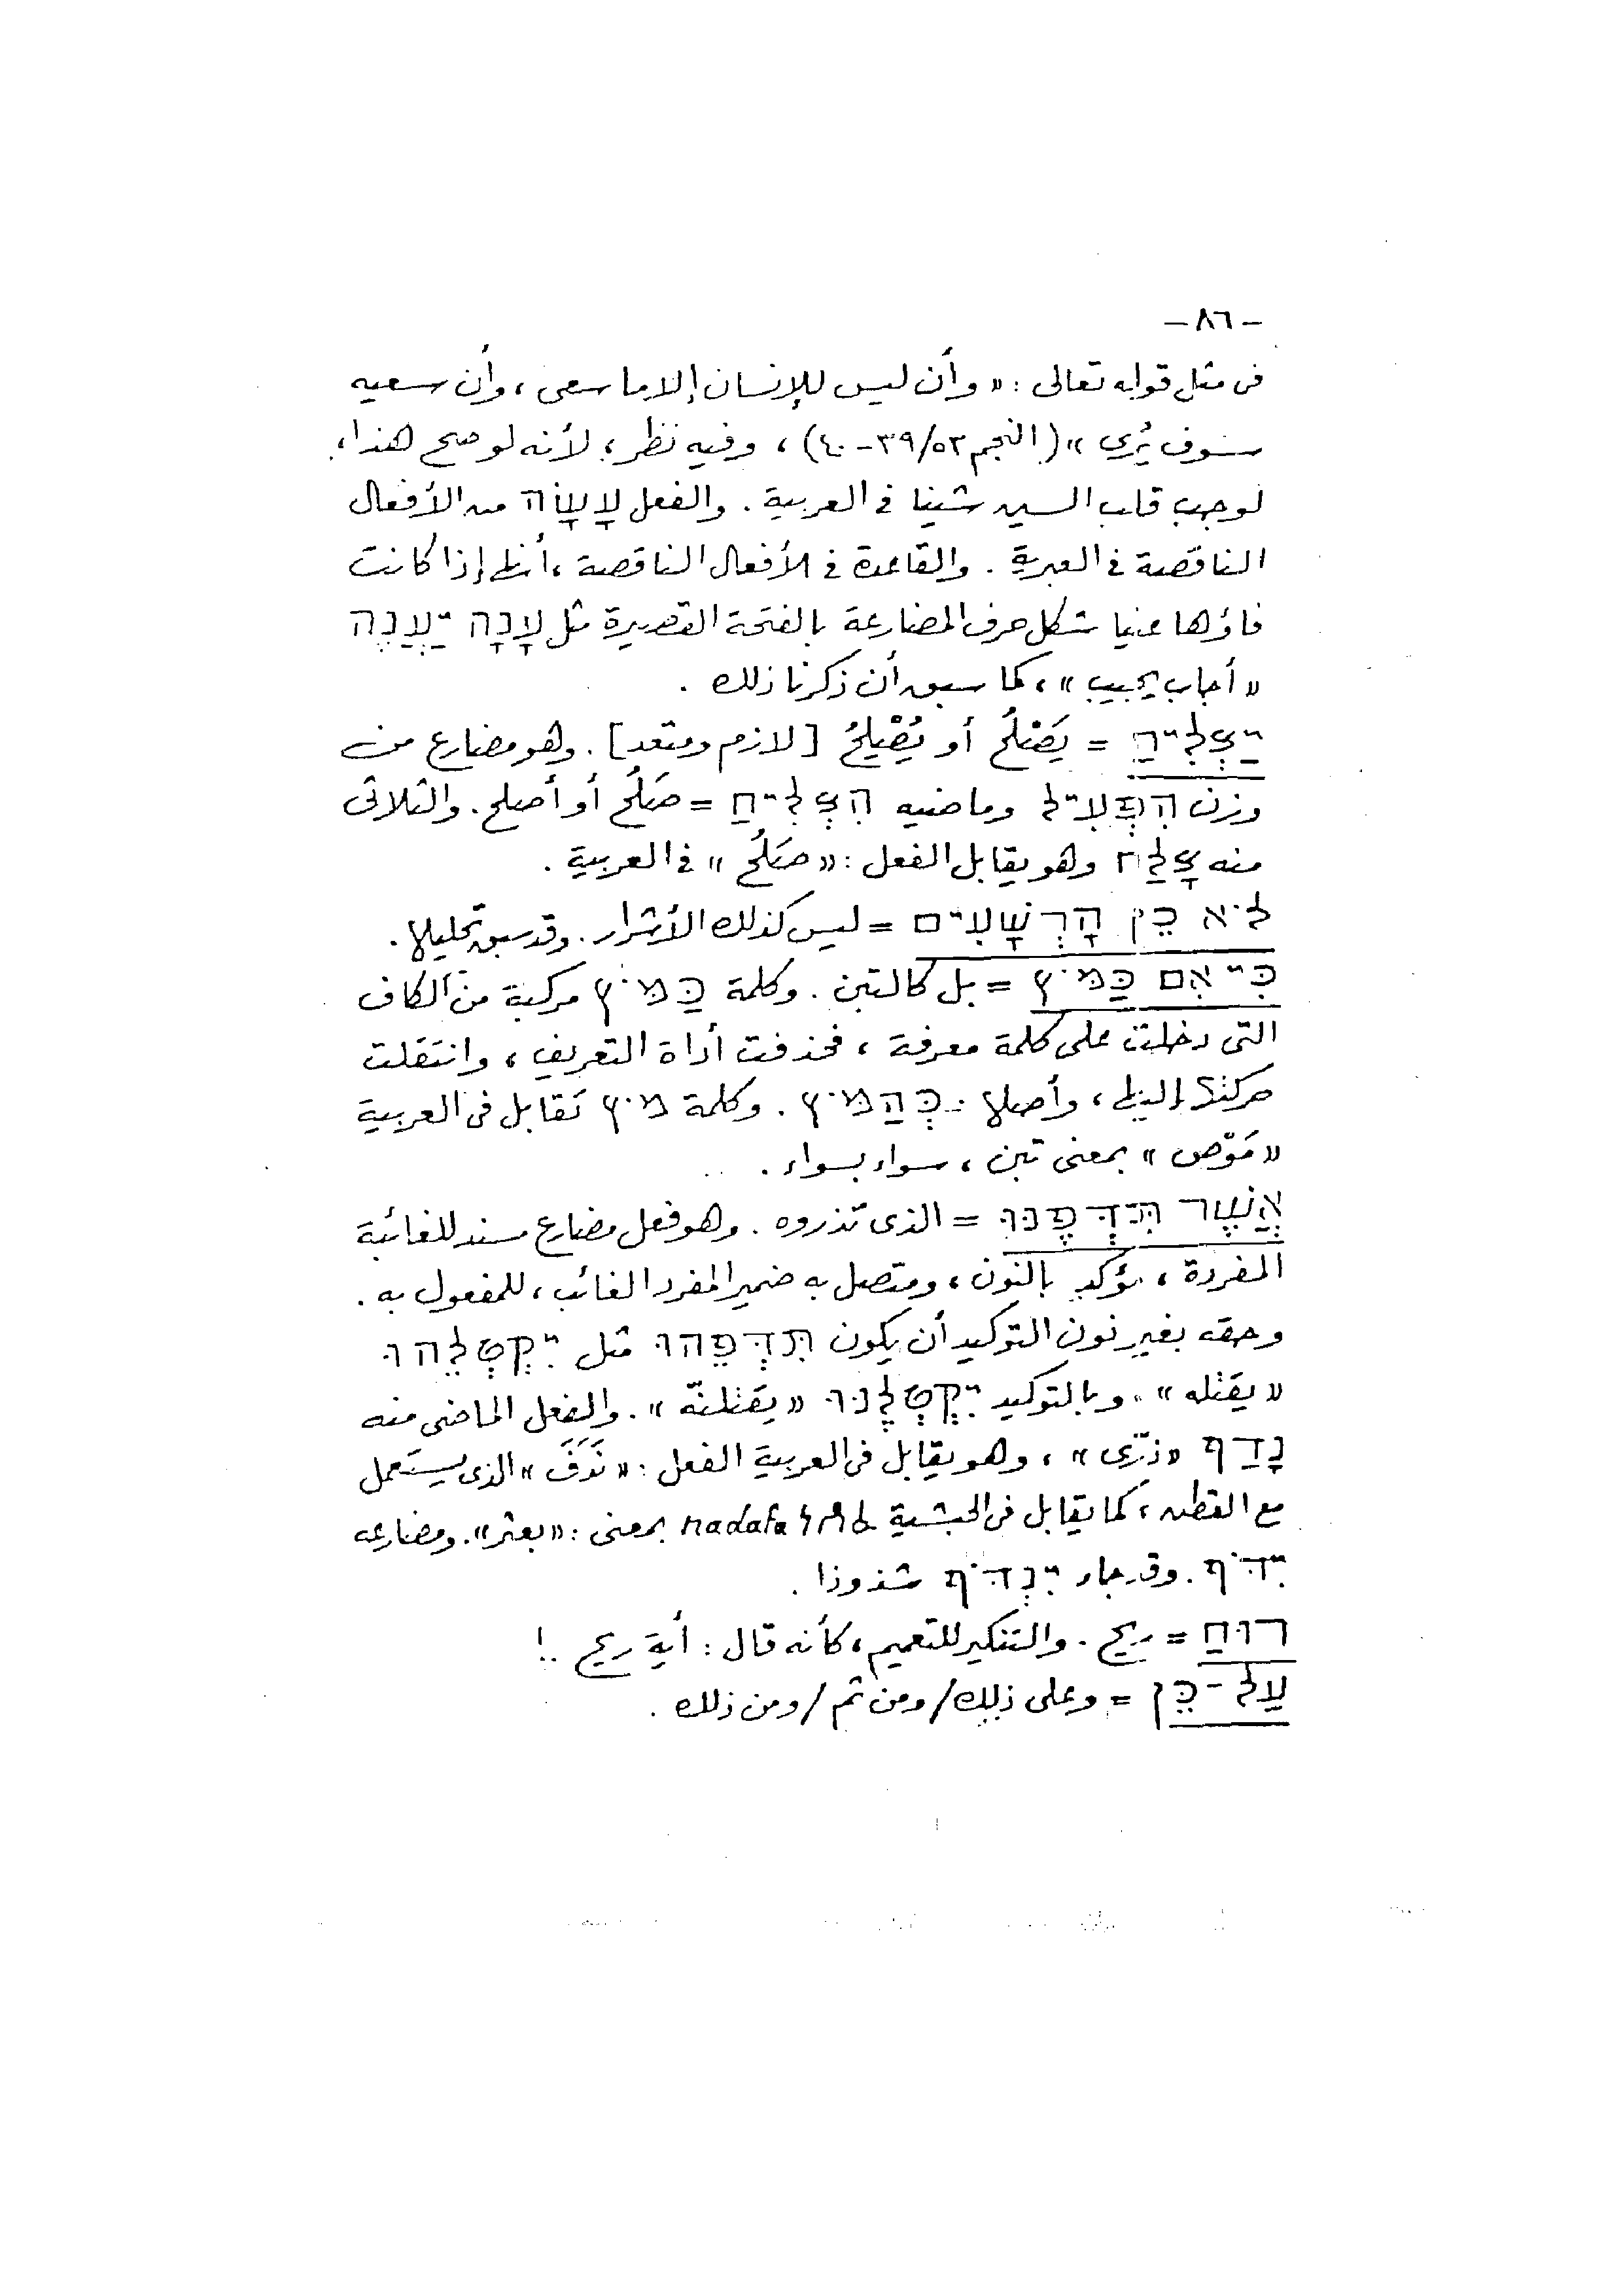 -٨٦-
فى مثل قوله تعالى : « وأن ليس للإنسان إلا ما سعى ، وأن سعيه
سوف يُرى » ( النجم ٥٣/٣٩-٤٠) ، وفيه نظر ؛ لأنه لو صح هذا ،
لوجب قلب السين شينا فى العربية . والفعل עָשָׂה من الأفعال
الناقصة فى العبرية . والقاعدة فى الأفعال الناقصة ، أنها إذا كانت
فاؤها عينا شكل حرف المضارعة بالفتحة القصيرة مثل עָנָה יַעֲנֶה
« أجاب يجيب » ، كما سبق أن ذكرنا ذلك .
יַצְלִיחַ = يَصْلُح أو يُصْلِحُ [ لازم ومتعد ] . وهو مضارع من
وزن הִפְעִיל وماضيه הִצְלִיחַ = صَلُح أو أصلح . والثلاثى
منه צָלַח وهو يقابل الفعل : « صَلُح » فى العربية .
לֹא כֵן הָרְשָׁעִים = ليس كذلك الأشرار . وقد سبق تحليلها .
כִּי אִם כַּמֹּץ = بل كالتبن . وكلمة כַּמֹּץ مركبة من الكاف
التى دخلت على كلمة معرفة ، فحذفت أداة التعريف ، وانتقلت
حركتها إليها ، وأصلها : כְּהַמֹּץ . وكلمة מֹץ تقابل فى العربية
« مَوّص » بمعنى تبن ، سواء بسواء .
אֲשֶׁר תִּדְּפֶנּוּ = الذى تذروه . وهو فعل مضارع مسند للغائبة
المفردة ، مؤكد بالنون ، ومتصل به ضمير المفرد الغائب ، للمفعول به .
وحقه بغير نون التوكيد أن يكون תִּדְּפֵהוּ مثل יִקְטְלֵהוּ
« يقتله » . وبالتوكيد יִקְטְלֶנּוּ « يقتلنّه » . والفعل الماضى منه
נָדַף « ذرّى » ، وهو يقابل فى العربية الفعل : « نَدَفَ » الذى يستعمل
مع القطن ، كما يقابل فى الحبشية nadafa بمعنى : « بعثر » . ومضارعه
יִדֹּף . وقد جاء יִנְדֹּף شذوذا .
רוּחַ = ريح . والتنكير للتعميم ، كأنه قال : أية ريح .. !
עַל־כֵּן = وعلى ذلك / ومن ثم / ومن ذلك .